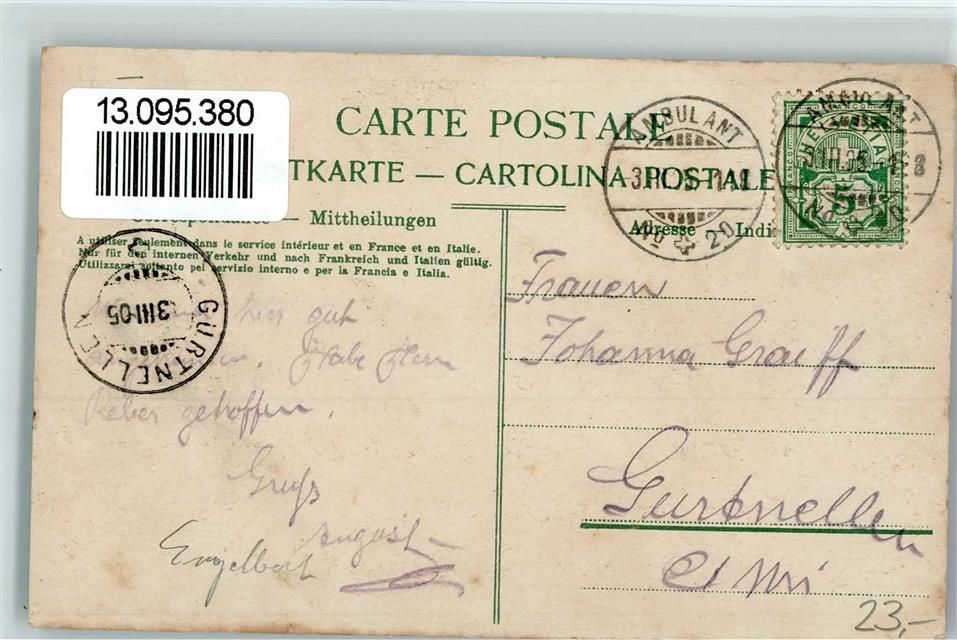 13.095.380
CARTE POSTALE
STKARTE — CARTOLINA POSTALE
Correspondance — Mittheilungen
A utiliser seulement dans le service intérieur et en France et en Italie.
Nur für den internen Verkehr und nach Frankreich und Italien gültig.
Utilizzarsi soltanto pel servizio interno e per la Francia e Italia.
Adresse — Indi
AMBULANT
3.III.05
No 20
AMBULANT
HELVETIA
5
GURTNELLEN
3 III 05
hier gut
Habe Herrn
Reber getroffen.
Gruss
August
Engelbert
Frauen
Johanna Graeff
Gurtnellen
Ct Uri
23,-